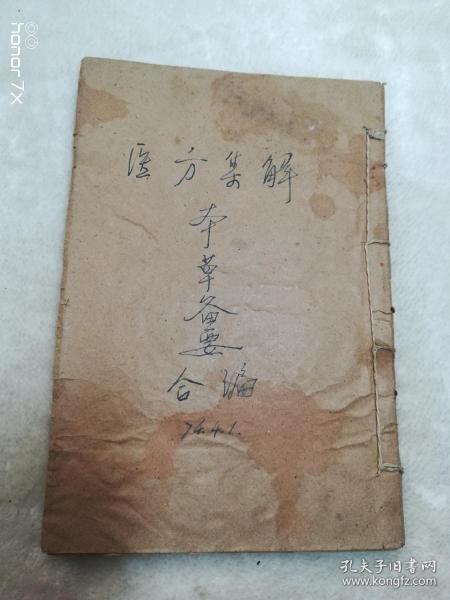 honor 7X
医方集解
本草备要
合编
74.4.1.
孔夫子旧书网
www.kongfz.com